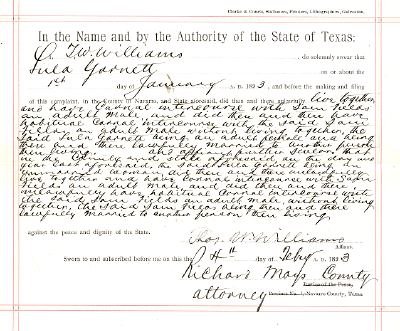 Clarke & Courts, Stationers, Printers, Lithographers, Galveston.
In the Name and by the Authority of the State of Texas:
I, T. W. Williams, do solemnly swear that
Lula Garnett on or about the
1st day of January A. D. 1893, and before the making and filing
of this complaint, in the County of Navarro, and State aforesaid, did then and there unlawfully live together
and have Carnal intercourse with Sam Fields
an adult male and did then and there have
habitual Carnal intercourse with the said Sam
Fields, an adult male without living together, the
said Lula Garnett being an adult female and
then and there lawfully married to another person
then living. And affiant further swears that
in the County and State aforesaid on the day and
year last aforesaid, the said Lula Garnett being an
unmarried woman, did then and there unlawfully
live together and have Carnal intercourse with Sam
Fields an adult male, and did then and there
unlawfully have habitual Carnal intercourse with
the said Sam Fields an adult male, without living
together, the said Sam Fields being then and there
lawfully married to another person then living,
against the peace and dignity of the State.
Thos. W. Williams
Sworn to and subscribed before me on this the 24th day of Feby A. D. 1893
Richard Mays County
attorney Navarro County, Texas